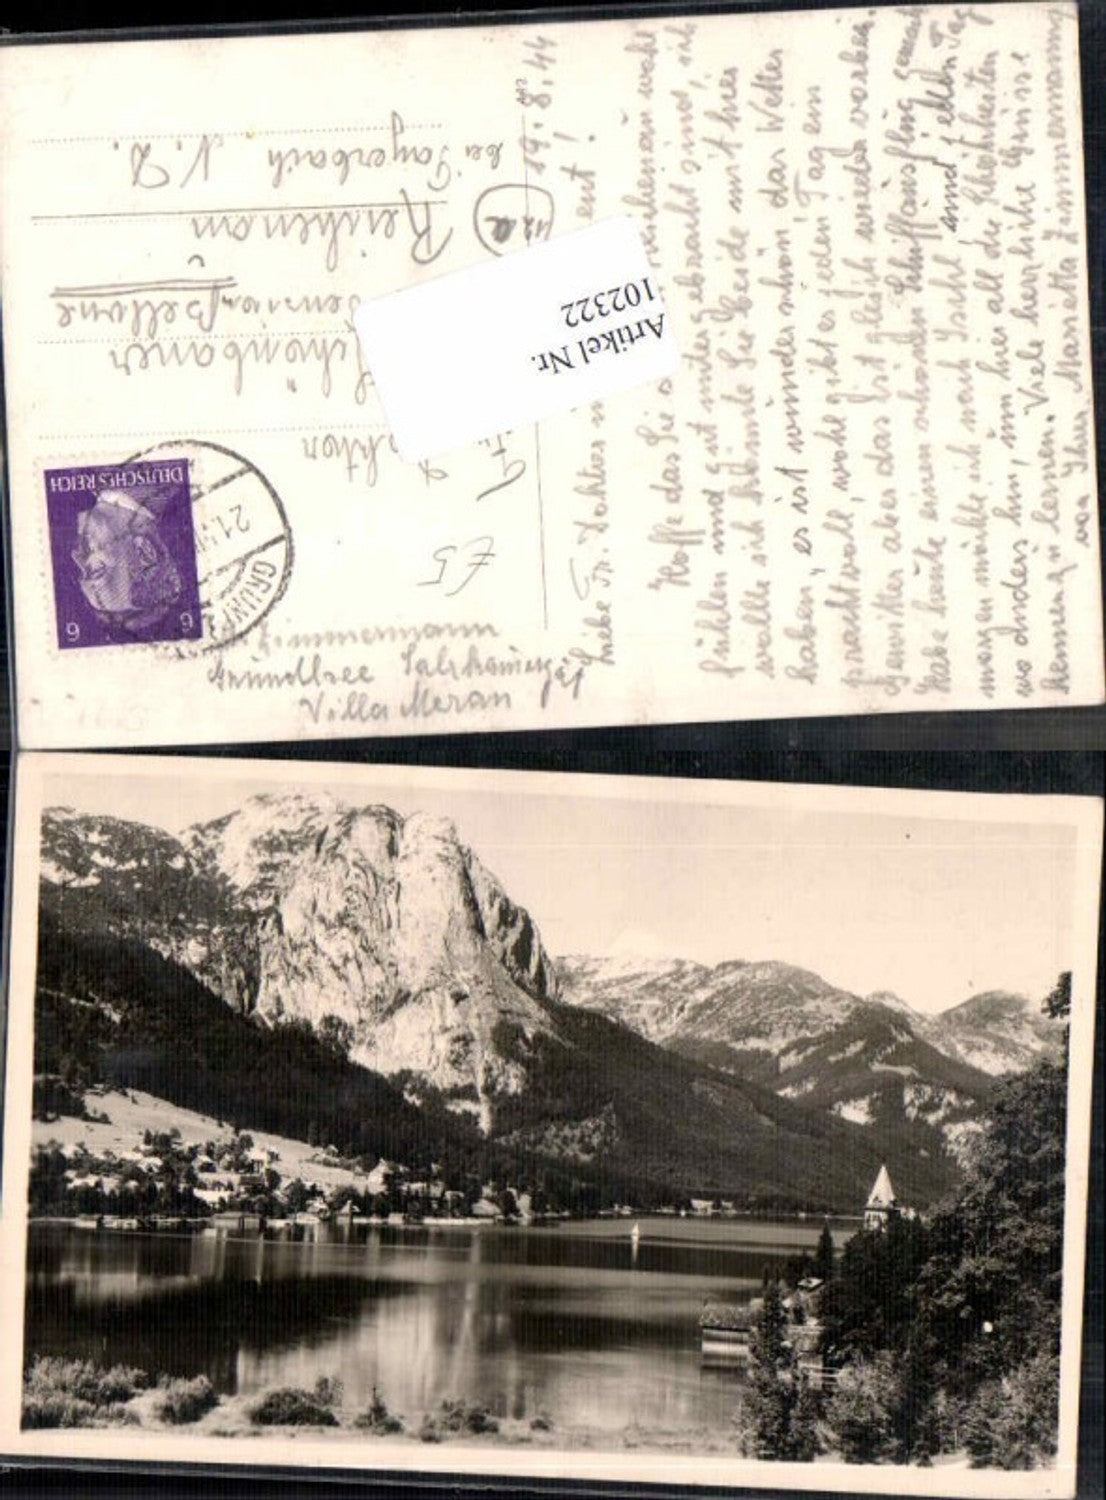 Zimmermann
Grundlsee Salzkammergut
Villa Meran
DEUTSCHES REICH
6 6
21.
GRUNDL
Fr. Doktor
Schönbauer
Pension Bellevue
12a Reichenau
bei Payerbach N. D.
£5
19. 8. 44
Liebe Fr. Doktor
Hoffe das Sie
fühlen und gut untergebracht sind, ich
wollte ich könnte Sie beide mit hier
haben, es ist wunderschön das Wetter
prachtvoll, wohl gibt es jeden Tag ein
Gewitter aber das ist gleich wieder vorbei.
Habe heute einen schönen Schiffausflug gemacht
morgen möchte ich nach Ischl und jeden Tag
wo anders hin, um hier all die Schönheiten
kennen zu lernen. Viele herzliche Grüsse
von Ihrer Marietta Zimmermann
Artikel Nr.
102322